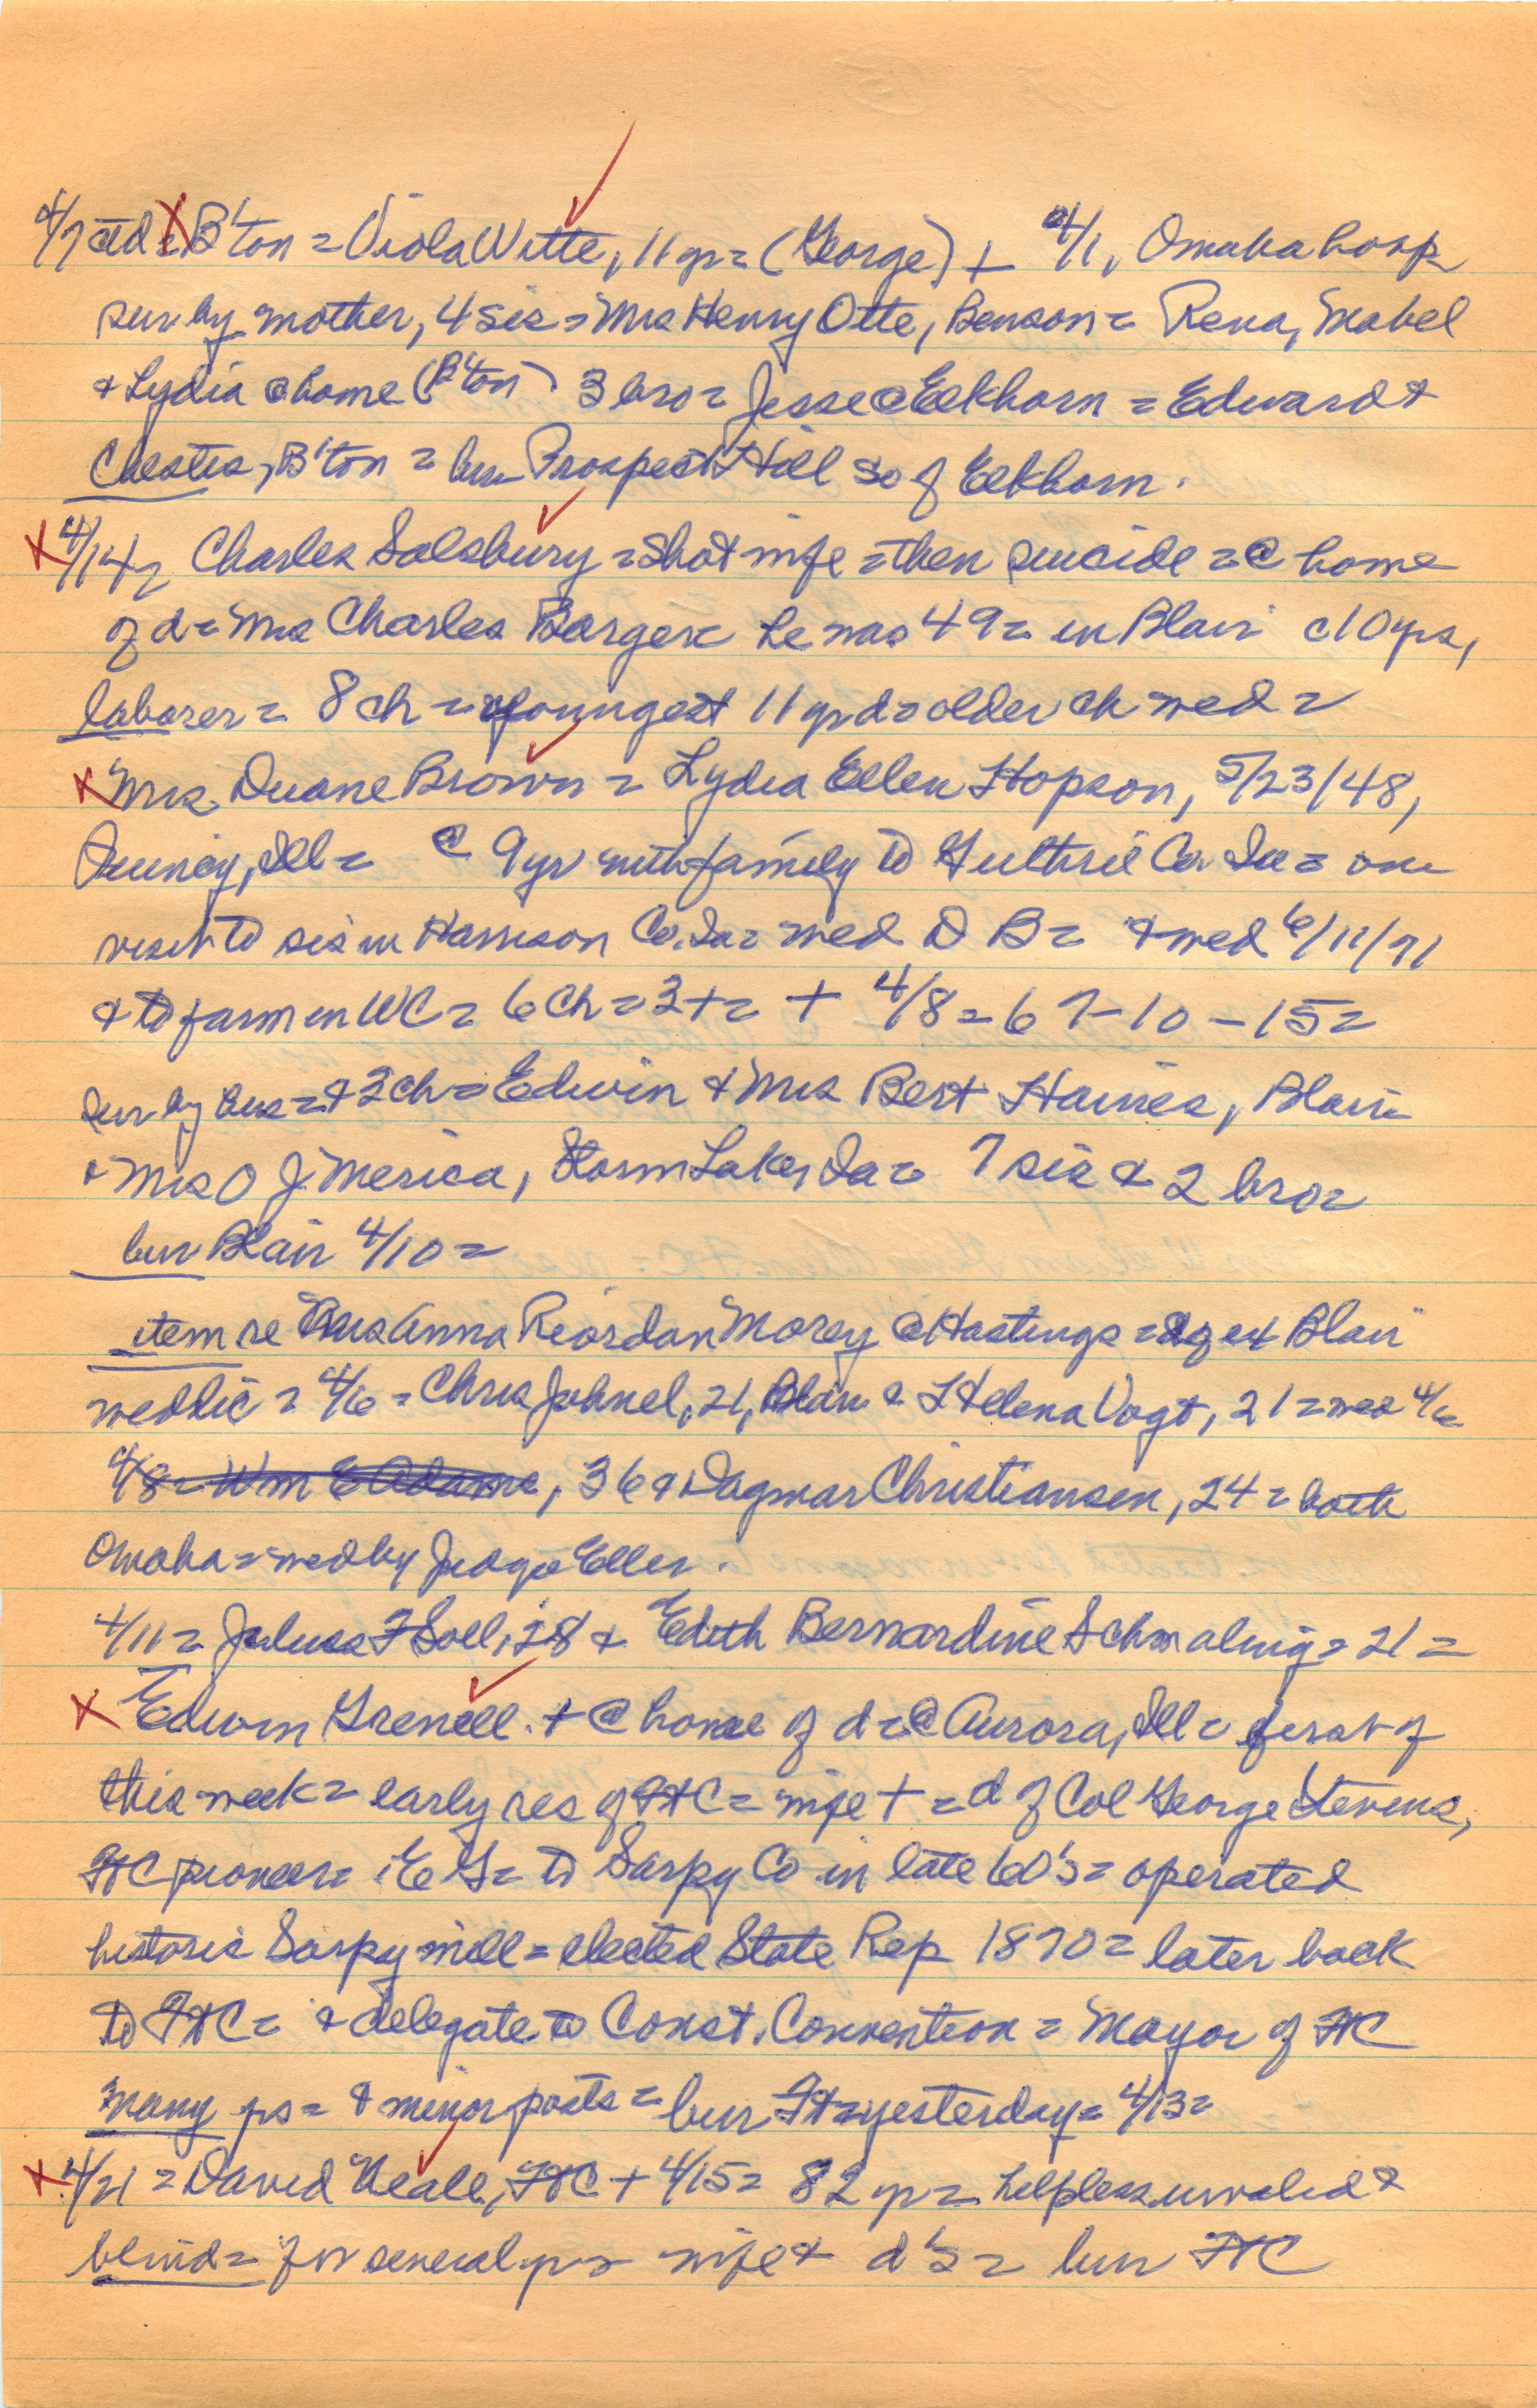 4/7 ctd = B'ton = Viola Witte, 11 yr = (George) + 4/1, Omaha hosp
sur by mother, 4 sis = Mrs Henry Otte, Benson = Rena, Mabel
& Lydia @ home (B'ton) 3 bro = Jesse @ Elkhorn = Edward &
Chester, B'ton = bur Prospect Hill so of Elkhorn.
4/14 = Charles Salsbury = shot wife = then suicide = @ home
of d = Mrs Charles Barger = he was 49 = in Blair c 10 yrs,
laborer = 8 ch = youngest 11 yr d = older ch wed =
Mrs Duane Brown = Lydia Ellen Hopson, 5/23/48,
Quincy, Ill = @ 9 yr with family to Guthrie Co. Ia = on
visit to sis in Harrison Co. Ia = med D B = & wed 6/11/71
& to farm in WC = 6 ch = 3 + = + 4/8 = 67-10-15 =
sur by hus = & 3 ch = Edwin & Mrs Bert Haines, Blair
& Mrs O J Merica, Storm Lake, Ia = 7 sis & 2 bro =
bur Blair 4/10 =
item re Mrs Anna Reordan Morey @ Hastings = ex Blair
wed lic = 4/6 = Chris Johnel, 21, Blair & Helena Vogt, 21 = wed 4/6
4/8 = Wm E Adams, 36 & Dagmar Christiansen, 24 = both
Omaha = wed by Judge Eller.
4/11 = Julius F Soll, 28 & Edith Bernardine Schmaling = 21 =
Edwin Grenell. + @ home of d = @ Aurora, Ill = first of
this week = early res of FtC = wife + = d of Col George Stevens,
FtC pioneer = E G = to Sarpy Co in late 60's = operated
historic Sarpy mill = elected State Rep 1870 = later back
to FtC = & delegate to Const. Convention = Mayor of FtC
many yrs = & minor posts = bur Ft = yesterday = 4/13 =
4/21 = David Neale, FtC + 4/15 = 82 yr = helpless invalid &
blind = for several yrs wife & d's = bur FtC